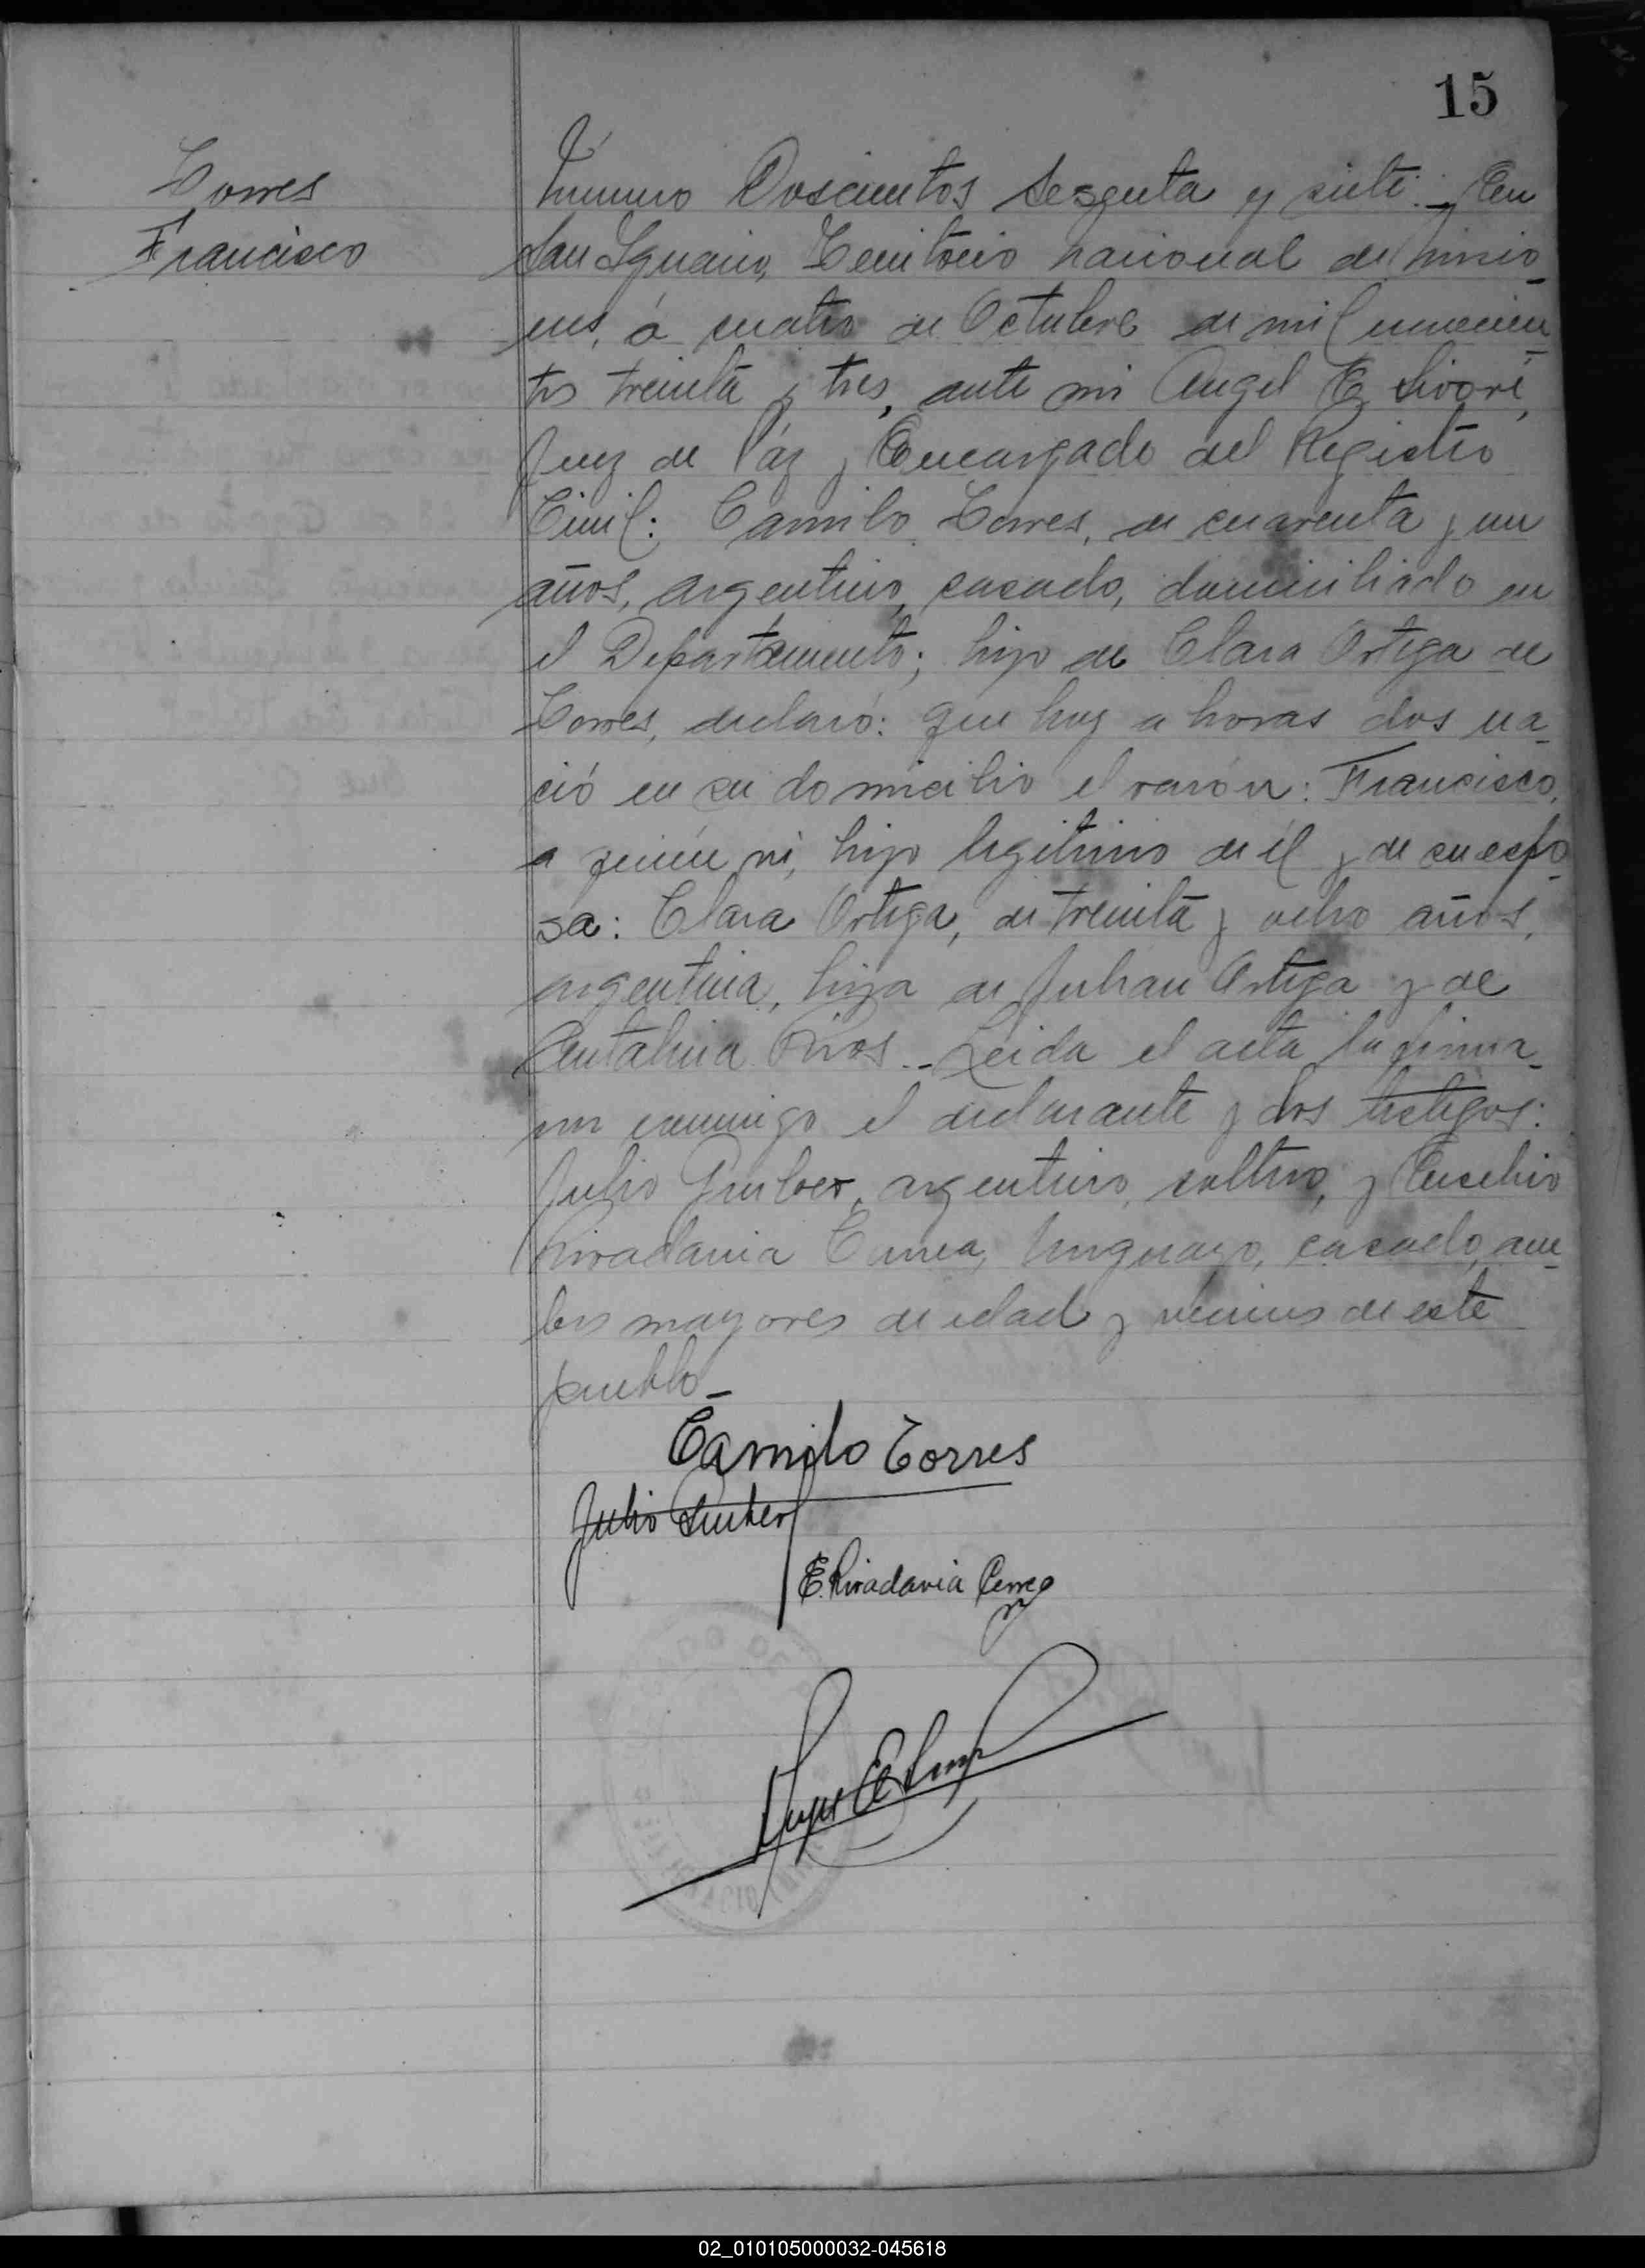 15
Torres
Francisco
Número Doscientos sesenta y siete:_ En
San Ignacio, Territorio nacional de Misio_
nes, á cuatro de Octubre de mil novecien_
tos treinta y tres, ante mi Angel E. Sivori,
Juez de Páz y Encargado del Registro
Civil: Camilo Torres, de cuarenta y un
años, argentino, casado, domiciliado en
el Departamento; hijo de Clara Ortega de
Torres, declaró: que hoy a horas dos na_
ció en su domicilio el varón: Francisco,
a quien vi, hijo legitimo de él y de su espo_
sa: Clara Ortega, de treinta y ocho años,
argentina, hija de Julian Ortega y de
Rios._ Leida el acta la firma_
ron conmigo el declarante y los testigos:
Julio argentino, soltero, y Eusebio
Rivadavia Uruguayo, casado, am_
bos mayores de edad y vecinos de este
pueblo_
Camilo Torres
Julio
E. Rivadavia
02_010105000032-045618